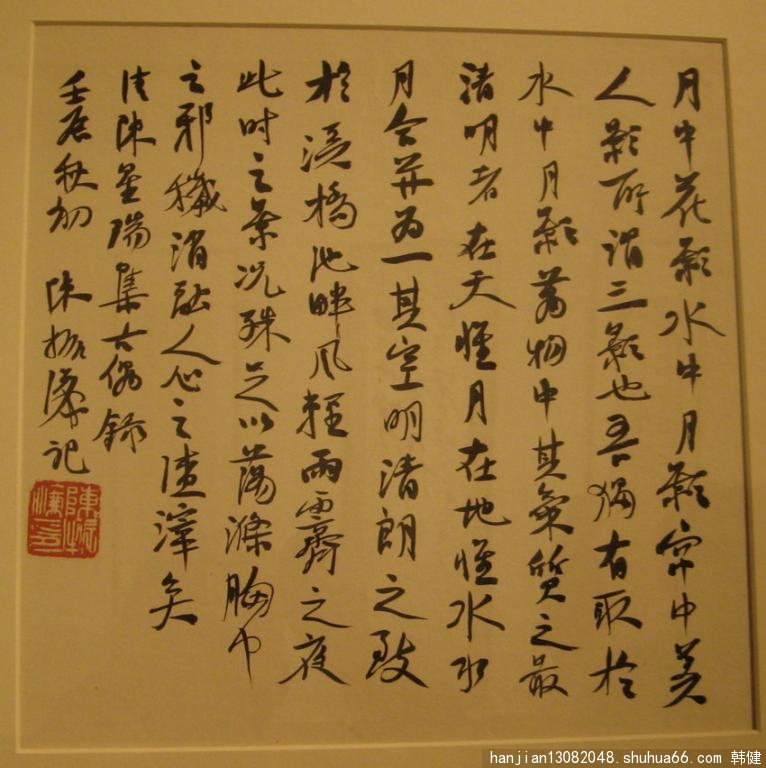 月中花影水中月影帘中美
人影所谓三影也吾獨有取於
水中月影萬物中其氣質之最
清明者在天惟月在地惟水水
月合并为一其空明清朗之致
於 橋池畔風輕雨霽之夜
此时之景况殊足以蕩滌胸中
之邪穢消融人心之渣滓矣
陳 集古偶錄
壬辰秋初 陳振濂记
陳振濂印
hanjian13082048.shuhua66.com 韩健